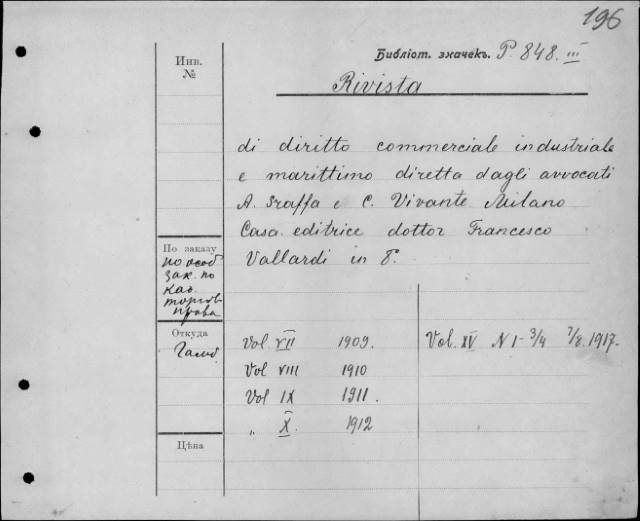 196
Библіот. значекъ. P. 848. III
Инв. №
Rivista
di diritto commerciale industriale
e marittimo diretta dagli avvocati
A. Sraffa e C. Vivante Milano
Casa editrice dottor Francesco
Vallardi in 8.
По заказу
по особ
зак. по
каѳ.
торгов
права
Откуда
Vol VII 1909.
Vol VIII 1910
Vol IX 1911.
„ X. 1912
Vol. XV N 1-3/4 7/8. 1917.
Цѣна